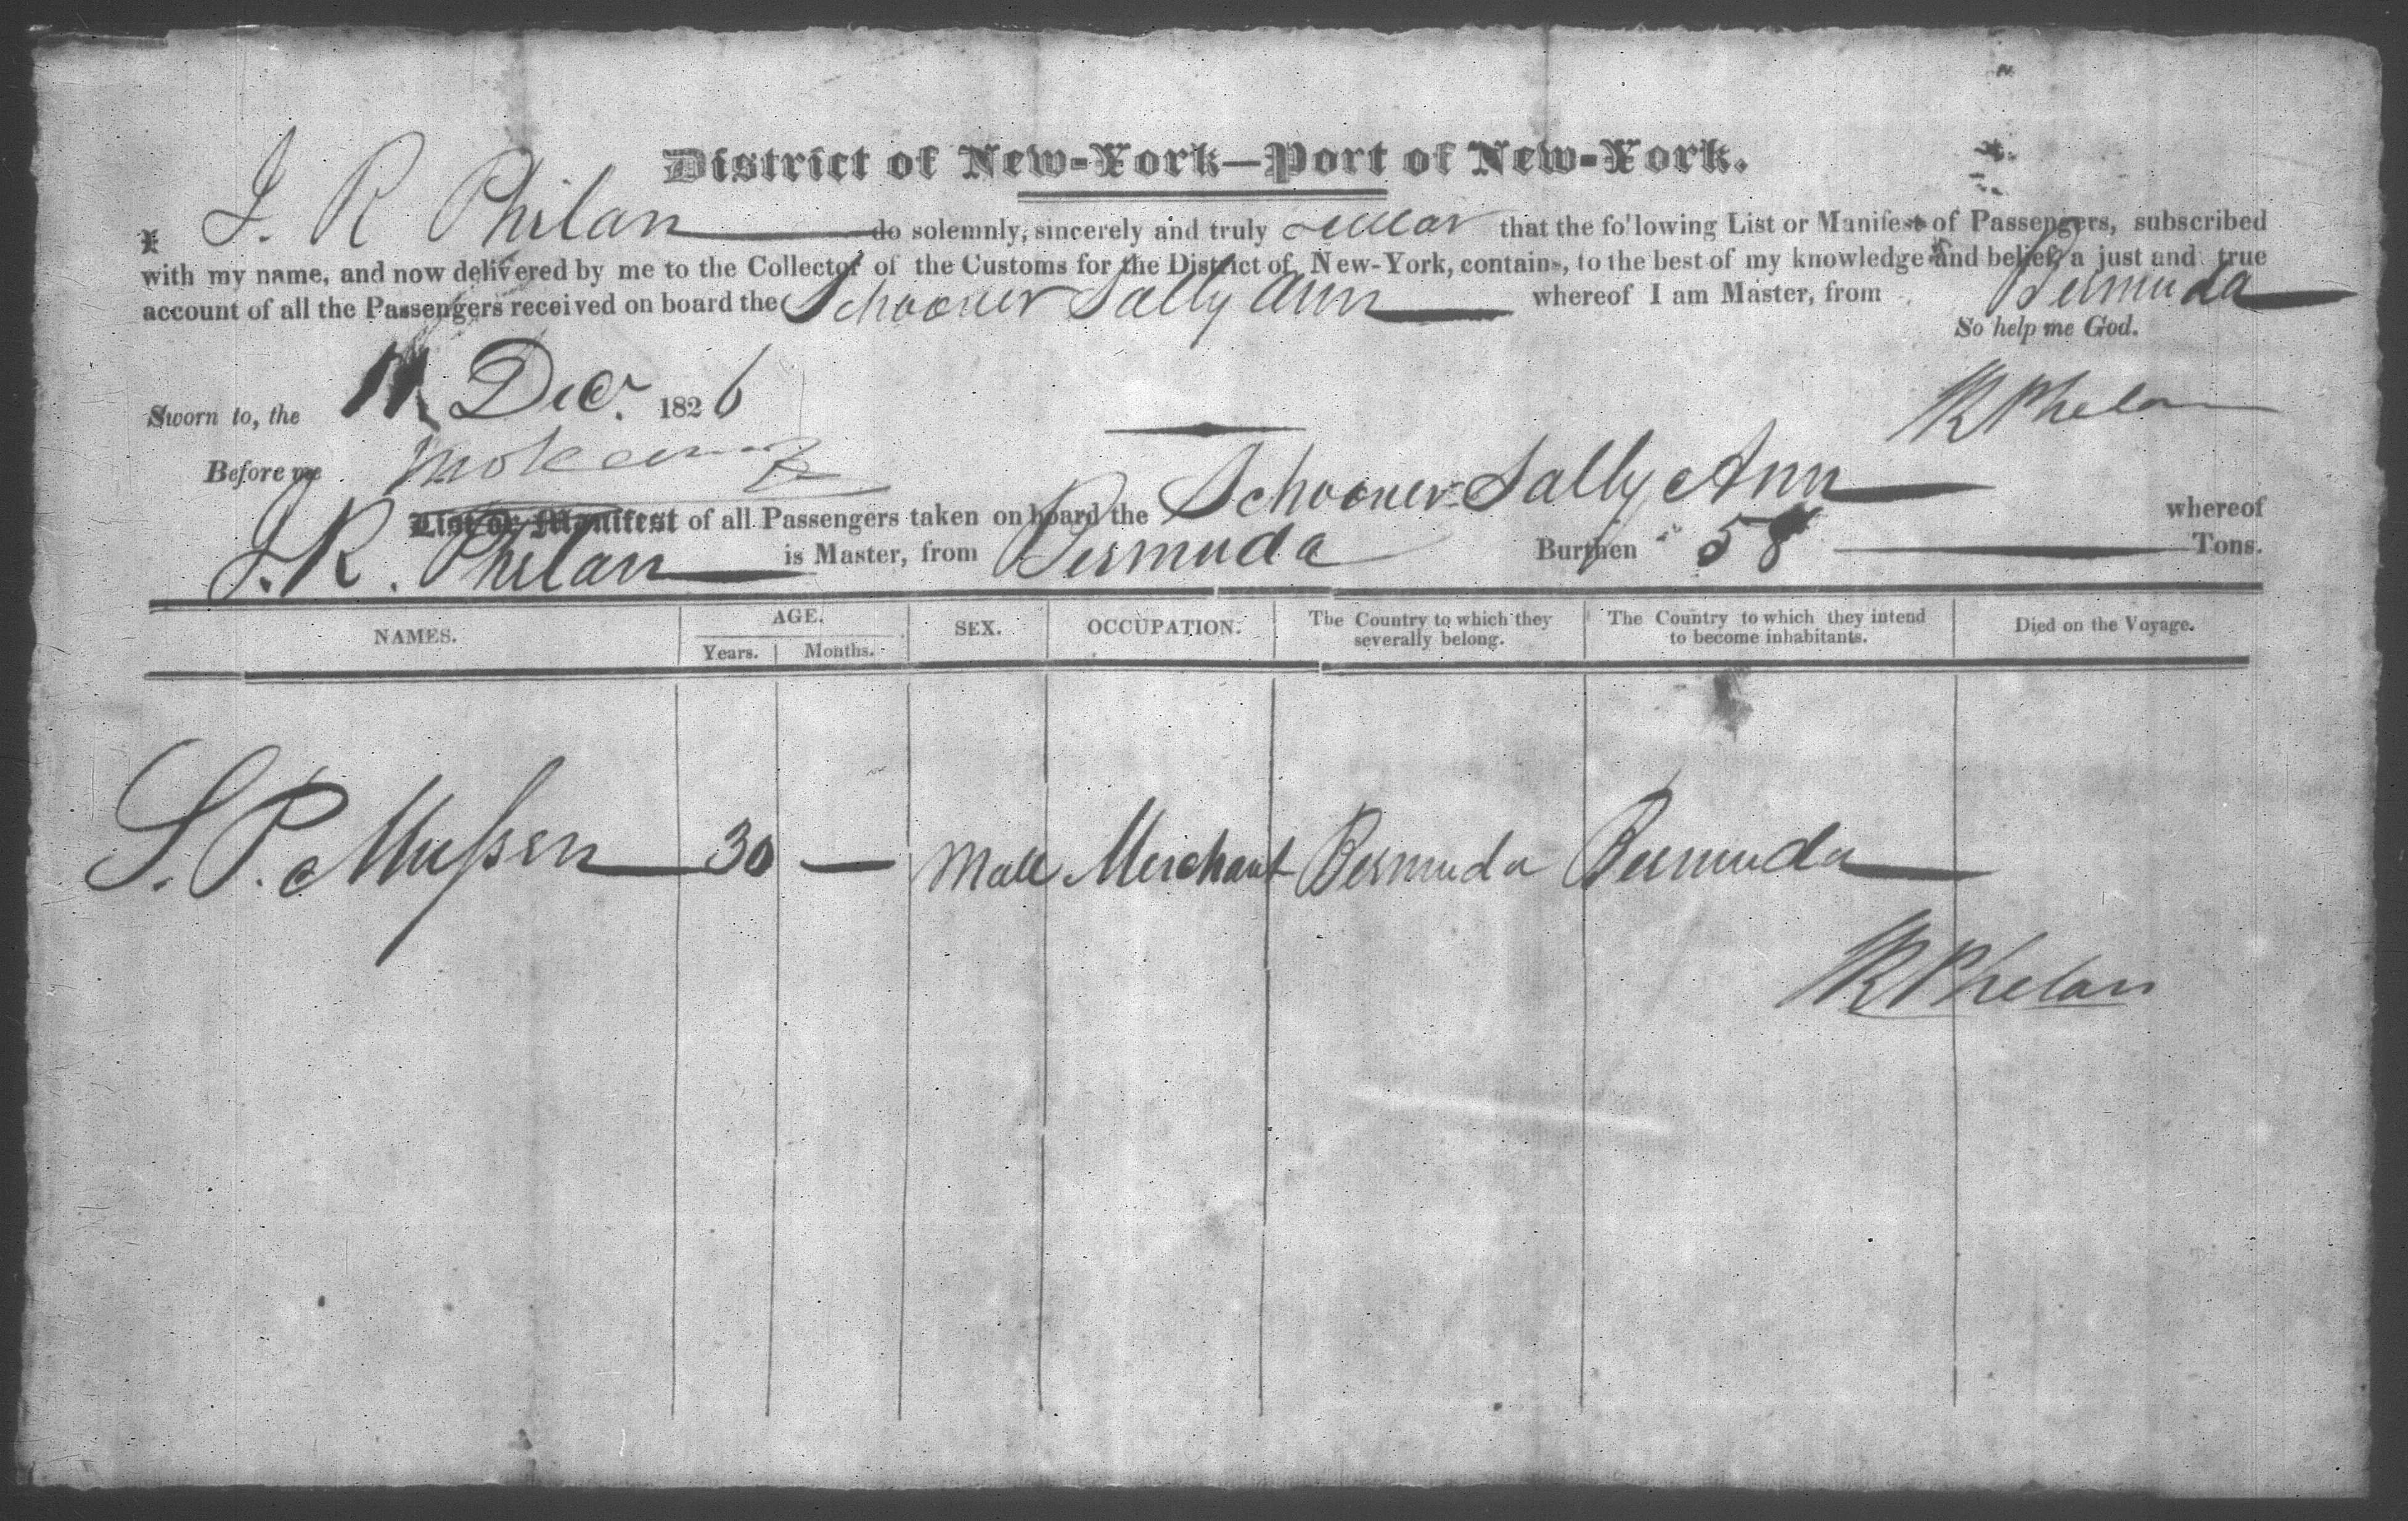 District of New-York—Port of New-York.
I J. R Philan do solemnly, sincerely and truly swear that the following List or Manifest of Passengers, subscribed
with my name, and now delivered by me to the Collector of the Customs for the District of New-York, contains, to the best of my knowledge and belief, a just and true
account of all the Passengers received on board the Schooner Sally Ann whereof I am Master, from Bermuda
So help me God.
Sworn to, the 11 Dec. 1826
JR Phelan
Before me
List or Manifest of all Passengers taken on board the Schooner Sally Ann whereof
J. R. Philan is Master, from Bermuda Burthen 58 Tons.
NAMES. AGE. Years. Months. SEX. OCCUPATION. The Country to which they severally belong. The Country to which they intend to become inhabitants. Died on the Voyage.
S. P. Mussen 30 — Male Merchant Bermuda Bermuda
JR Phelan